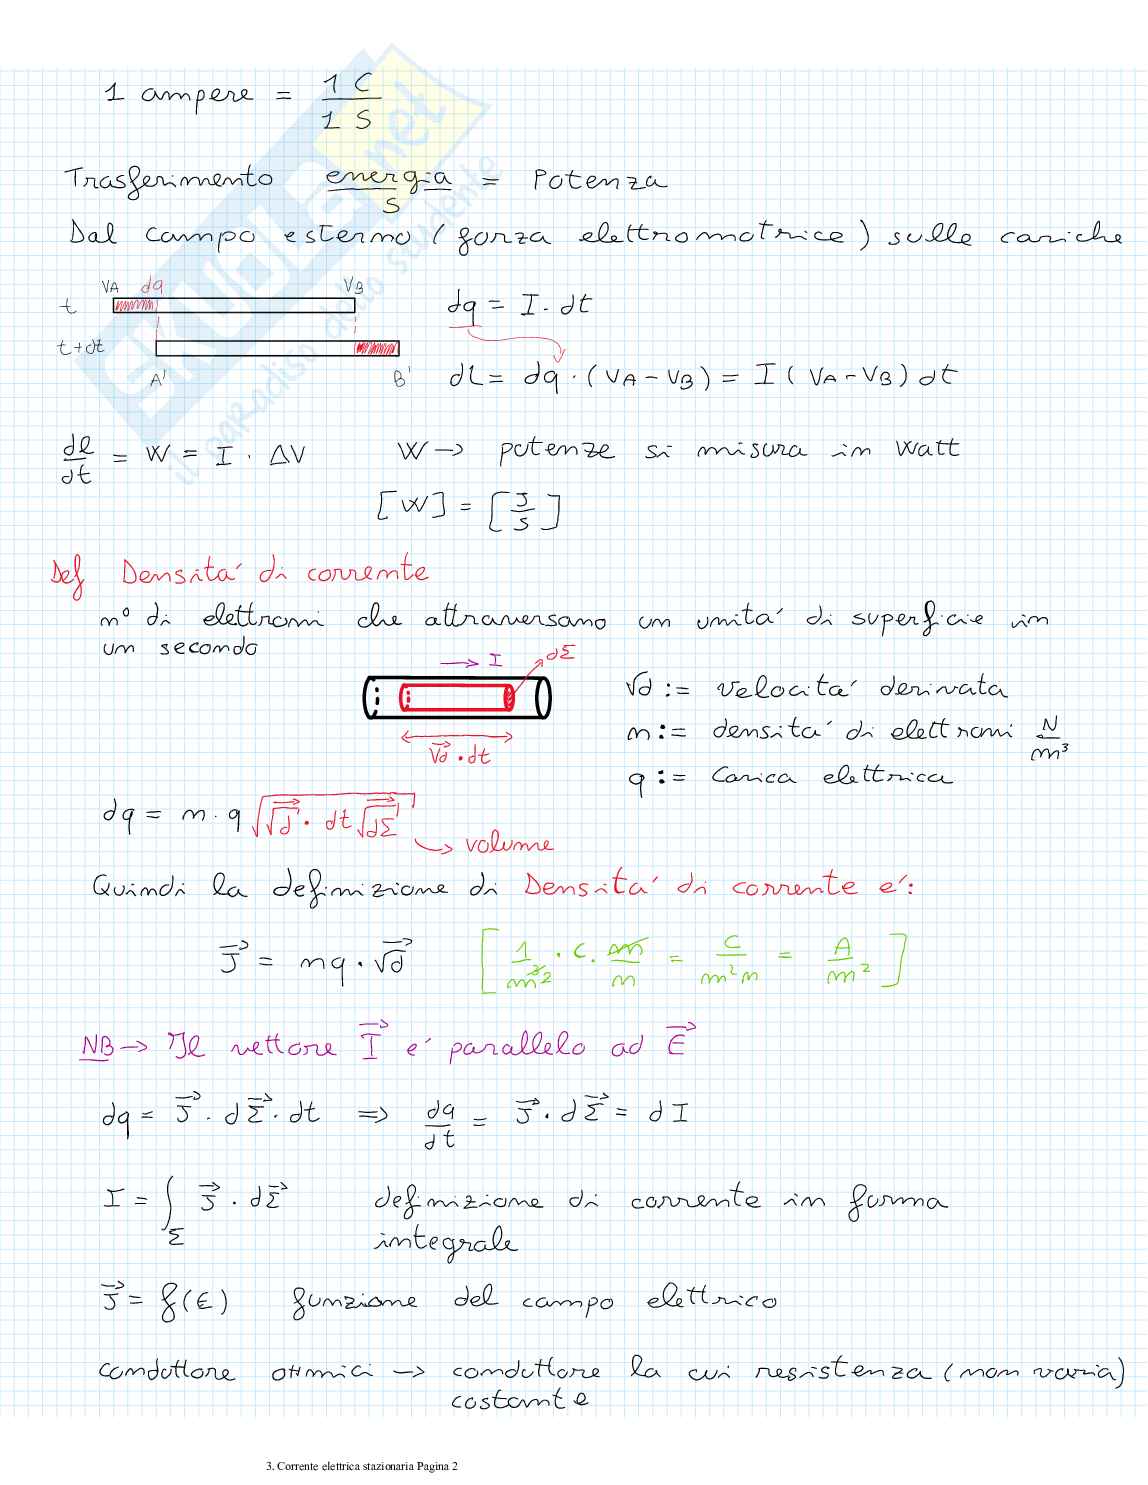 1 ampere = 1 C / 1 S
Trasferimento energia / S = Potenza
Dal campo esterno (forza elettromotrice) sulle cariche
VA dq VB
t
t+dt
A' B'
dq = I · dt
dL = dq · (VA - VB) = I (VA - VB) dt
dl/dt = W = I · ΔV W → potenze si misura in Watt
[W] = [J/s]
Def Densita' di corrente
n° di elettroni che attraversano un unita' di superficie in
un secondo
→ I dΣ
vd · dt
vd := velocita' derivata
n := densita' di elettroni N/m³
q := carica elettrica
dq = n · q √vd · dt √dΣ → volume
Quindi la definizione di Densita' di corrente e':
J = nq · vd [1/m² · C · m/n = C/m²n = A/m²]
NB → Il vettore I e' parallelo ad E
dq = J · dΣ · dt ⇒ dq/dt = J · dΣ = dI
I = ∫Σ J · dΣ definizione di corrente in forma
integrale
J = f(E) funzione del campo elettrico
conduttore oHmici → conduttore la cui resistenza (non varia)
costante
3. Corrente elettrica stazionaria Pagina 2
SKUOLA.net
il paradiso dello studente